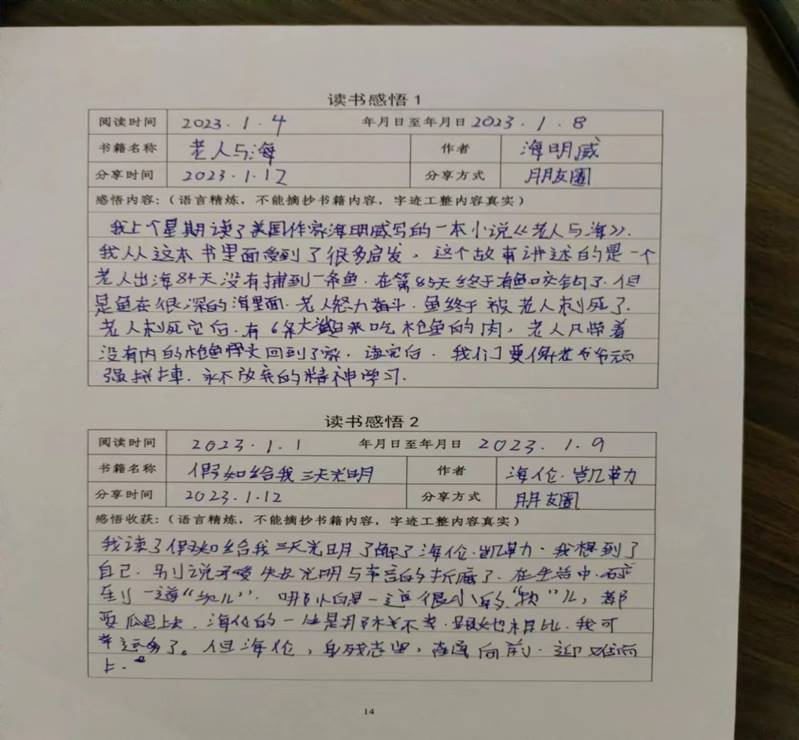 读书感悟 1
阅读时间 2023.1.4 年月日至年月日 2023.1.8
书籍名称 老人与海 作者 海明威
分享时间 2023.1.12 分享方式 朋友圈
感悟内容:(语言精炼,不能摘抄书籍内容,字迹工整内容真实)
我上个星期读了美国作家海明威写的一本小说《老人与海》.
我从这本书里面受到了很多启发,这个故事讲述的是一个
老人出海84天没有捕到一条鱼.在第85天终于有鱼咬钩了.但
是鱼在很深的海里面.老人努力奋斗.鱼终于被老人刺死了.
老人刺死它后.有6条大鲨鱼来吃枪鱼的肉,老人只带着
没有肉的枪鱼骨头回到了家.读完后.我们要像老爷爷顽
强拼搏.永不放弃的精神学习.
读书感悟 2
阅读时间 2023.1.1 年月日至年月日 2023.1.9
书籍名称 假如给我三天光明 作者 海伦·凯勒
分享时间 2023.1.12 分享方式 朋友圈
感悟收获:(语言精炼,不能摘抄书籍内容,字迹工整内容真实)
我读了假如给我三天光明了解了海伦.凯勒.我想到了
自己.别说承受失去光明与声音的折磨了.在生活中.碰
到一道"坎儿".哪怕是一道很小的"坎"儿,都
要 海伦的一生是 跟她相比.我可
幸运多了。但海伦,身残志坚,直向前.迎难而
上.
14